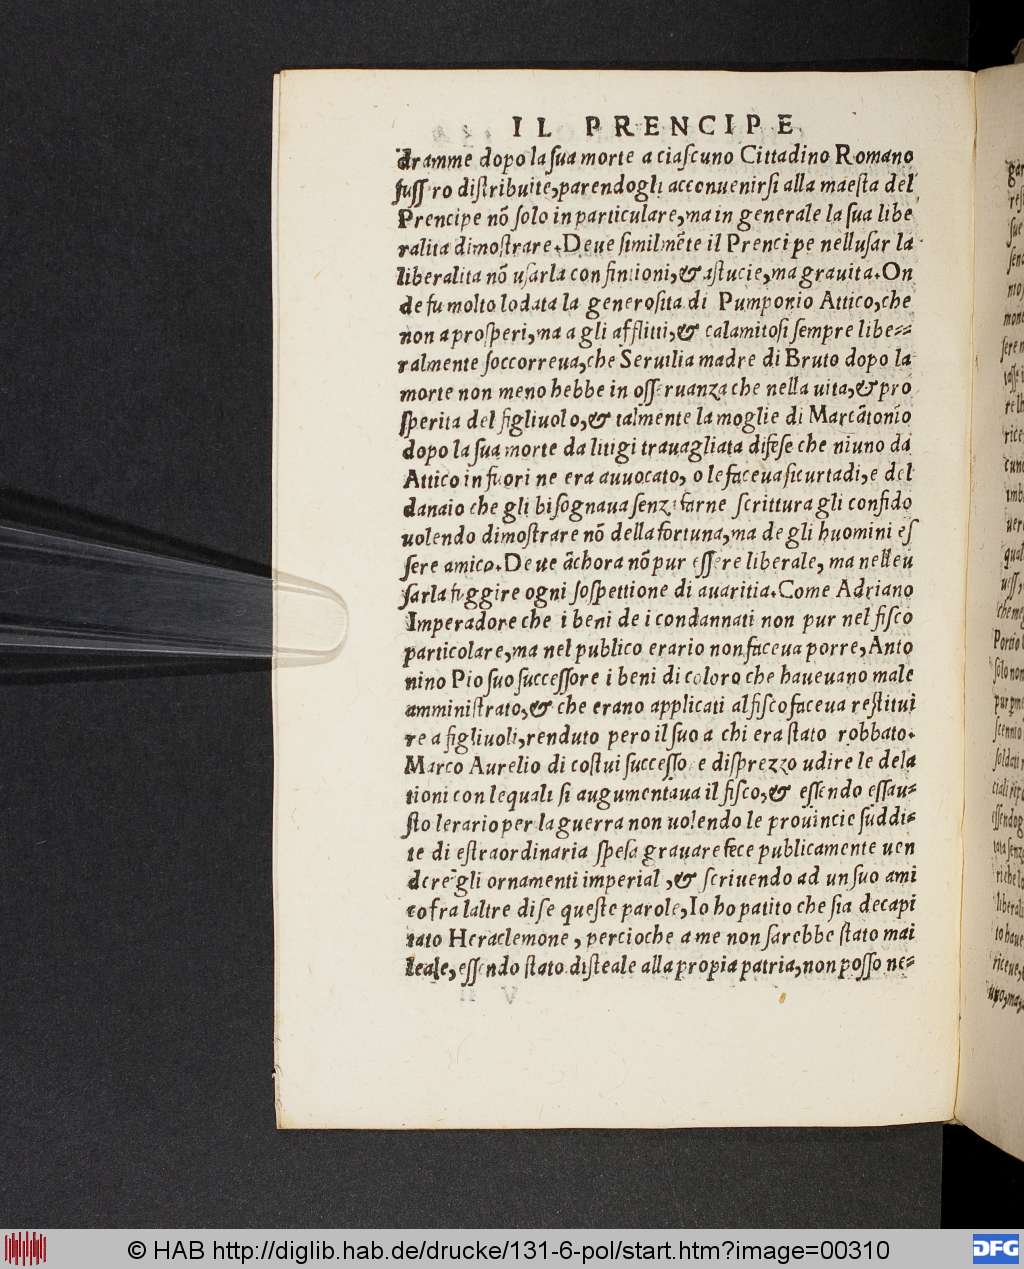 IL PRENCIPE
dramme dopo la sua morte a ciascuno Cittadino Romano
fussero distribuite, parendogli acconuenirsi alla maesta del
Prencipe nõ solo in particulare, ma in generale la sua libe
ralita dimostrare. Deue similmẽte il Prencipe nell usar la
liberalita nõ usarla con fintioni, & astucie, ma grauita. On
de fu molto lodata la generosita di Pumponio Attico, che
non a prosperi, ma a gli afflitti, & calamitosi sempre libe=
ralmente soccorreua, che Seruilia madre di Bruto dopo la
morte non meno hebbe in osseruanza che nella uita, & pro
sperita del figliuolo, & talmente la moglie di Marcãtonio
dopo la sua morte da litigi trauagliata difese che niuno da
Attico in fuori ne era auuocato, o le faceua sicurtadi, e del
danaio che gli bisognaua senza farne scrittura gli confido
uolendo dimostrare nõ della fortuna, ma de gli huomini es
sere amico. Deue ãchora nõ pur essere liberale, ma nell eu
sarla fuggire ogni sospettione di auaritia. Come Adriano
Imperadore che i beni de i condannati non pur nel fisco
particolare, ma nel publico erario non faceua porre, Anto
nino Pio suo successore i beni di coloro che haueuano male
amministrato, & che erano applicati al fisco faceua restitui
re a figliuoli, renduto pero il suo a chi era stato robbato.
Marco Aurelio di costui successore disprezzo udire le dela
tioni con lequali si augumentaua il fisco, & essendo essau=
sto lerario per la guerra non uolendo le prouincie suddi=
te di estraordinaria spesa grauare fece publicamente uen
dere gli ornamenti imperial, & scriuendo ad un suo ami
co fra laltre dise queste parole, Io ho patito che sia decapi
tato Heraclemone, percioche a me non sarebbe stato mai
leale, essendo stato disleale alla propia patria, non posso ne=
© HAB http://diglib.hab.de/drucke/131-6-pol/start.htm?image=00310
DFG